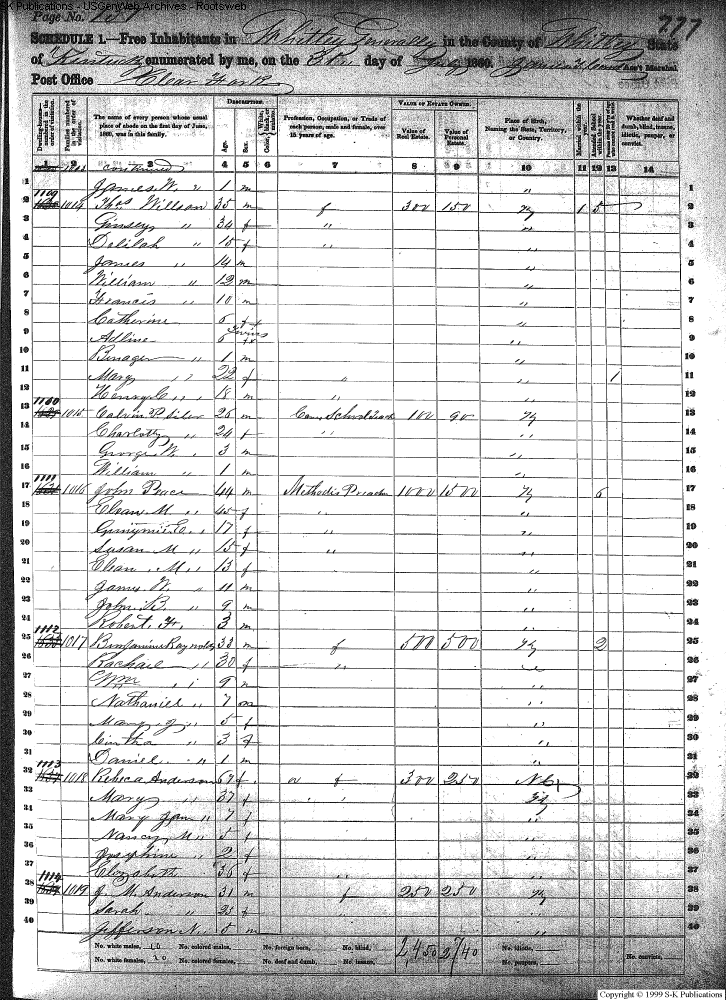 S-K Publications - USGenWeb Archives - Rootsweb
Page No. 151
777
SCHEDULE 1.—Free Inhabitants in Whittley Generally in the County of Whitley State
of Kentucky enumerated by me, on the day of July 1860. Ass't Marshal.
Post Office Clear Fork
DESCRIPTION. VALUE OF ESTATE OWNED.
Dwelling-houses—numbered in the order of visitation. Families numbered in the order of visitation. The name of every person whose usual place of abode on the first day of June, 1860, was in this family. Age. Sex. Color, White, black, or mulatto. Profession, Occupation, or Trade of each person, male and female, over 15 years of age. Value of Real Estate. Value of Personal Estate. Place of Birth, Naming the State, Territory, or Country. Married within the year. Attended School within the year. Whether deaf and dumb, blind, insane, idiotic, pauper, or convict.
1 2 3 4 5 6 7 8 9 10 11 12 13 14
continued
1 James W. " 1 m " 1
1109
2 1014 Thos Willson 35 m f 300 150 Ky 1 5 2
3 Ginsey " 34 f " " 3
4 Delilah " 15 f " " 4
5 James " 14 m " 5
6 William " 12 m " 6
7 Francis " 10 m " 7
8 Catherine 6 f " 8
Twins
9 Adline 6 f " 9
10 Binager " 1 m " 10
11 Mary " 22 f " " 1 11
12 Henry C. " 18 m " " 12
1110
13 1015 Calvin P. Siler 26 m Com School Teach 100 90 Ky 13
14 Charlotty " 24 f " " 14
15 George W. " 3 m " 15
16 William " 1 m " 16
1111
17 1016 John Peace 44 m Methodis Preacher 1000 1500 Ky 6 17
18 Elean M. " 45 f " " 18
19 E. " 17 f " " 19
20 Susan M " 15 f " " 20
21 Elean M. " 13 f " 21
22 James W. " 11 m " 22
23 John B. " 9 m " 23
24 Robert F. " 3 m " 24
1112
25 1017 Binjamin Raynolds 33 m f 500 500 Ky 2 25
26 Rachael " 30 f " " 26
27 Wm " 9 m " 27
28 Nathaniel " 7 m " 28
29 Mary J " 5 f " 29
30 Cintha " 3 f " 30
31 Daniel " 1 m " 31
1113
32 1018 Rebeca Anderson 67 f f 300 250 N C 32
33 Mary " 37 f " Ky 33
34 Mary Jan " 7 f " 34
35 Nancy M " 5 f " 35
36 Josephine " 2 f " 36
37 Elizabeth " 36 f " " 37
1114
38 1019 J. M. Anderson 31 m f 250 250 Ky 38
39 Sarah " 25 f " 39
40 Jefferson N. " m " 40
No. white males, No. colored males, No. foreign born, No. blind, 2,450 2740 No. idiotic,
No. white females, No. colored females, No. deaf and dumb, No. insane, No. paupers, No. convicts,
Copyright © 1999 S-K Publications